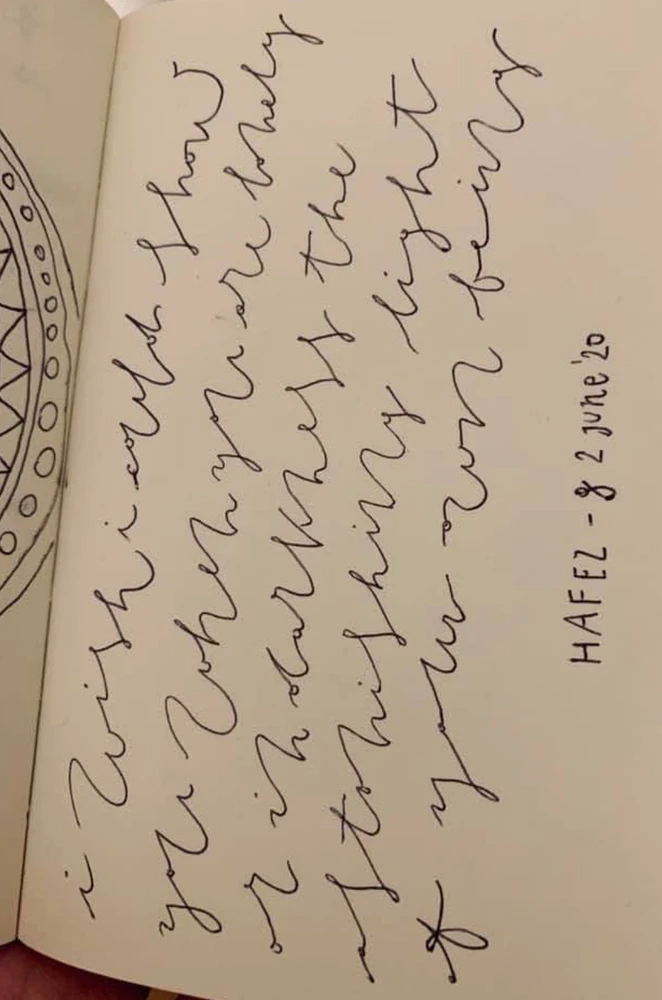 i wish i could show
you when you are lonely
or in darkness the
astonishing light
of your own being
HAFEZ - g 2 june '20